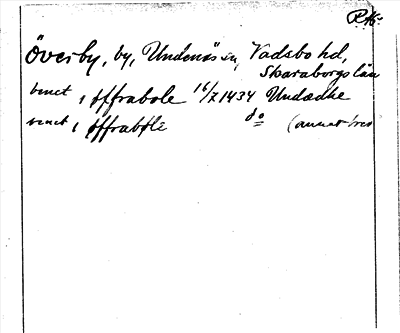 RAp.
Överby, by, Undenäs sn, Vadsbo hd,
Skaraborgs län
benct i øffrabole 16/7 1434 Undædhe
benct i øffrabøle do (annat brev